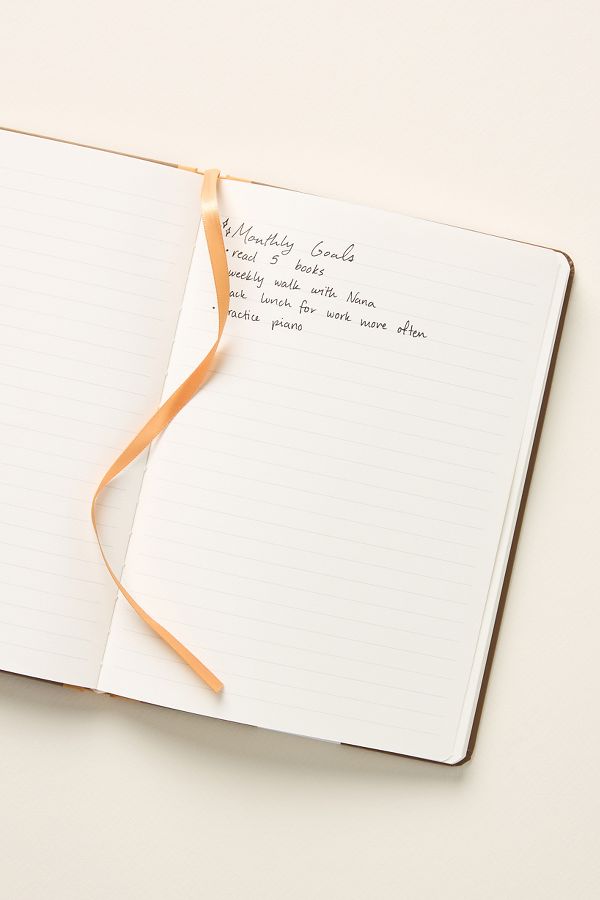 Monthly Goals
• read 5 books
weekly walk with Nana
ack lunch for work more often
• ractice piano